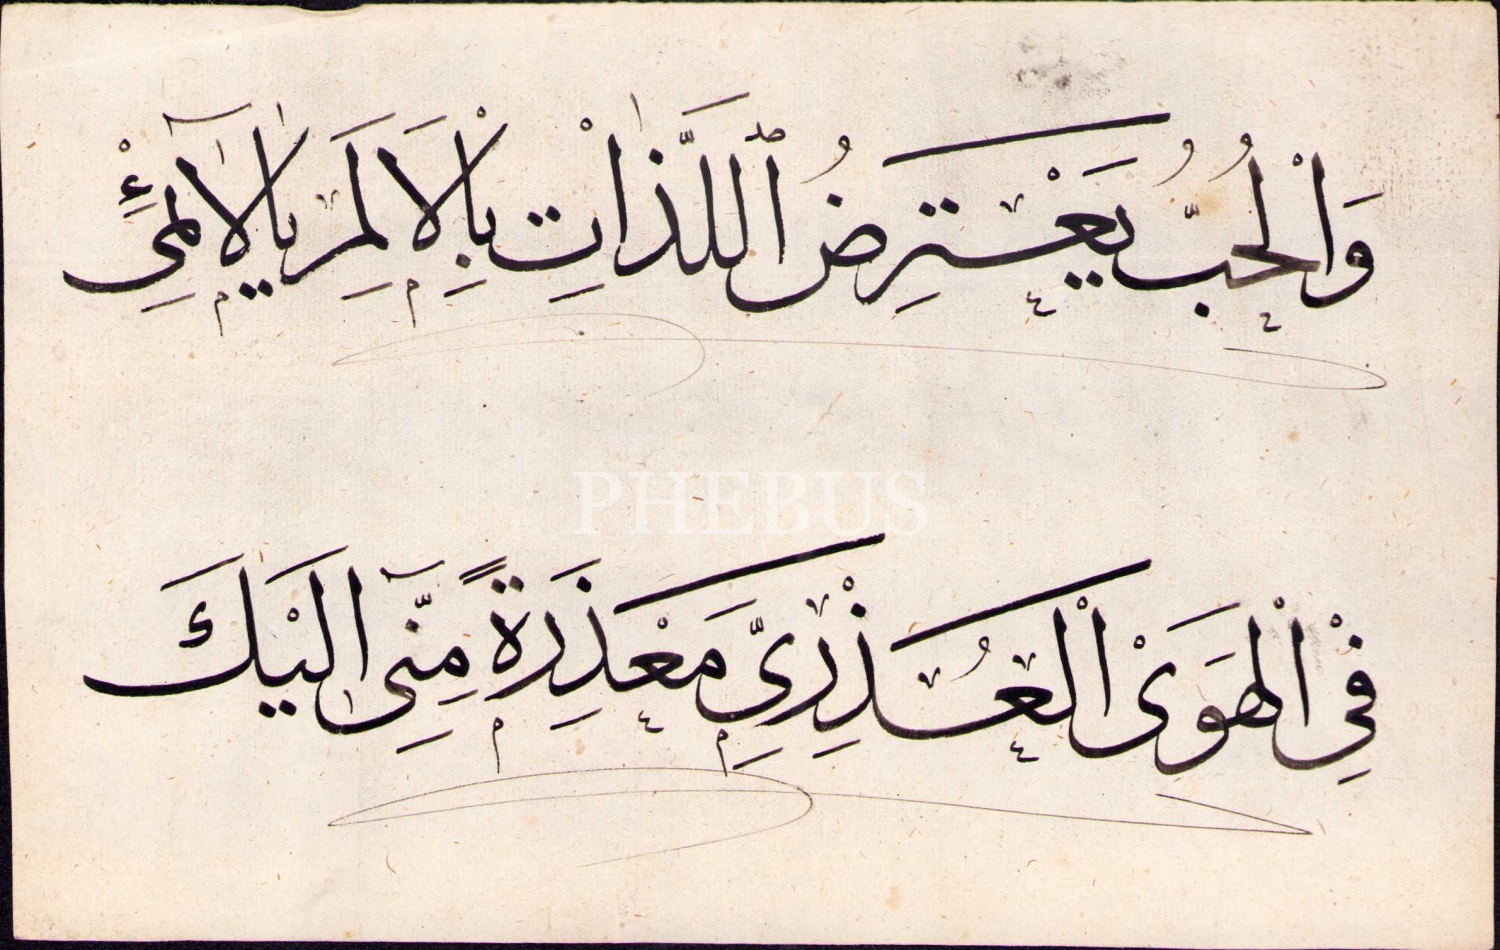 وَالْحُبُّ يَعْتَرِضُ ٱللَّذَاتِ بِالْاَلَمِ يَا لَآئِمِىْ
PHEBUS
فِىْ الْهَوَىْ الْعُذْرِىِّ مَعْذِرَةً مِنِّى اِلَيْكَ